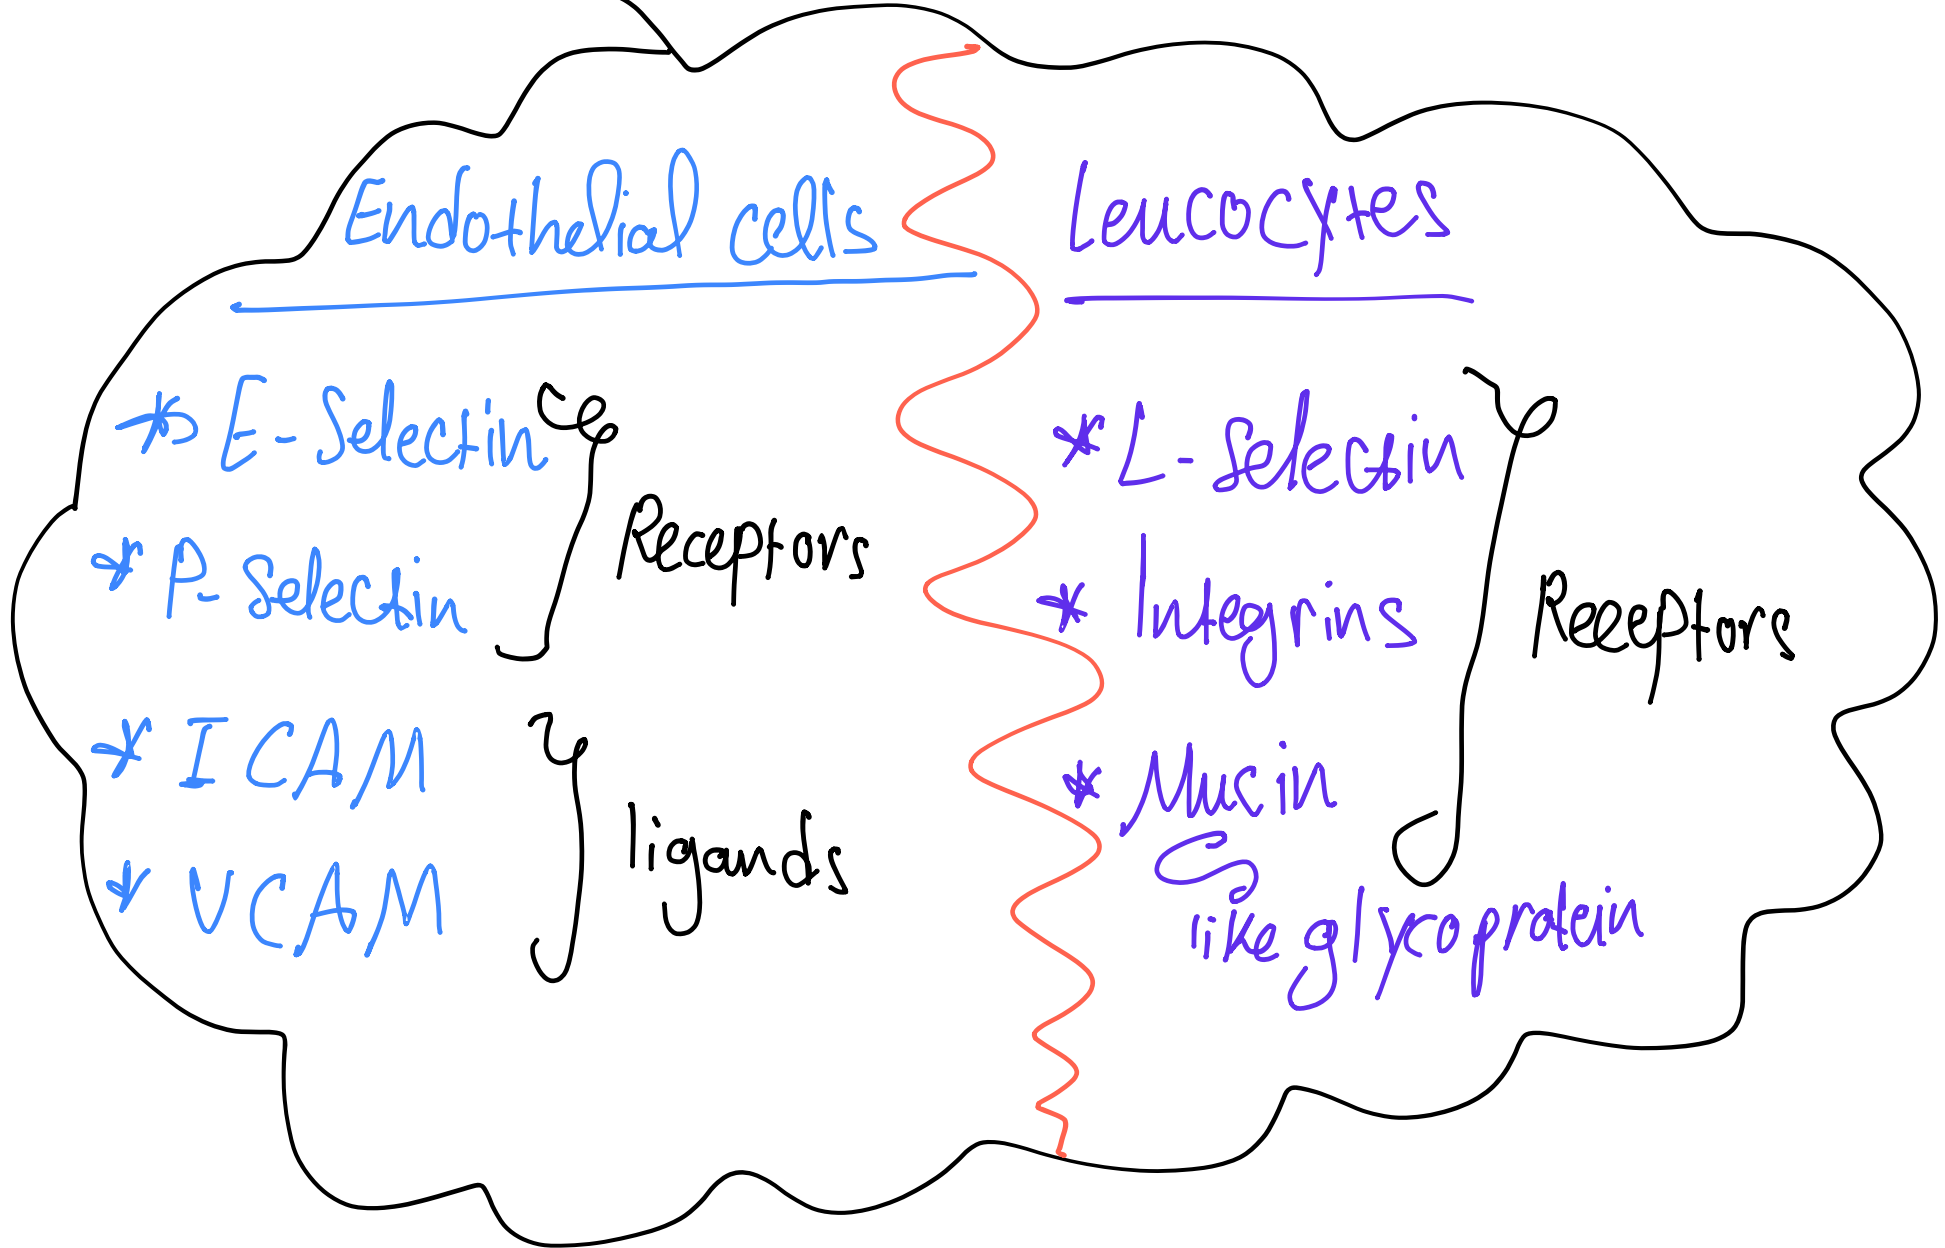 Endothelial cells
* E-Selectin
* P-Selectin
Receptors
* ICAM
* VCAM
ligands
Leucocytes
* L-Selectin
* Integrins
* Mucin
like glycoprotein
Receptors